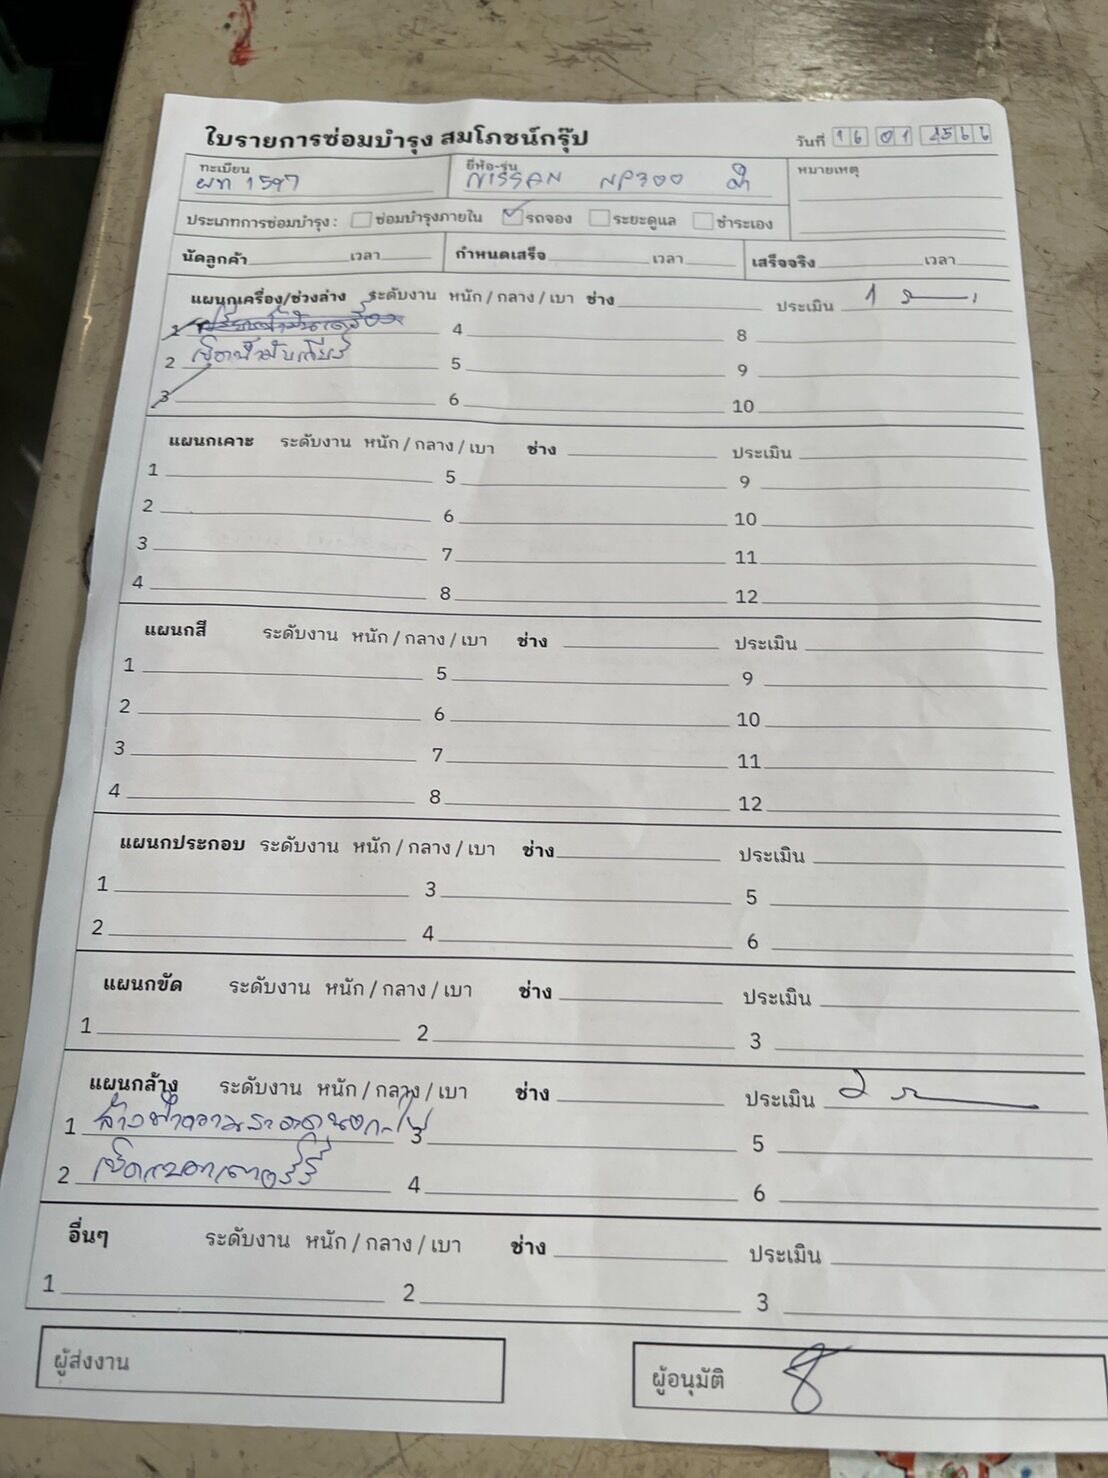 ใบรายการซ่อมบำรุง สมโภชน์กรุ๊ป
วันที่ 16 01 2566
ทะเบียน
ผท 1597
ยี่ห้อ-รุ่น
NISSAN NP300 ดำ
หมายเหตุ
ประเภทการซ่อมบำรุง : ซ่อมบำรุงภายใน รถจอง ระยะดูแล ชำระเอง
นัดลูกค้า เวลา กำหนดเสร็จ เวลา เสร็จจริง เวลา
แผนกเครื่อง/ช่วงล่าง ระดับงาน หนัก / กลาง / เบา ช่าง ประเมิน 1
1 4 8
2 เช็คน้ำมันเกียร์ 5 9
3 6 10
แผนกเคาะ ระดับงาน หนัก / กลาง / เบา ช่าง ประเมิน
1 5 9
2 6 10
3 7 11
4 8 12
แผนกสี ระดับงาน หนัก / กลาง / เบา ช่าง ประเมิน
1 5 9
2 6 10
3 7 11
4 8 12
แผนกประกอบ ระดับงาน หนัก / กลาง / เบา ช่าง ประเมิน
1 3 5
2 4 6
แผนกขัด ระดับงาน หนัก / กลาง / เบา ช่าง ประเมิน
1 2 3
แผนกล้าง ระดับงาน หนัก / กลาง / เบา ช่าง ประเมิน 2
1 ล้างทำความสะอาดนอก-ใน 3 5
2 เช็คแบตเตอรี่ 4 6
อื่นๆ ระดับงาน หนัก / กลาง / เบา ช่าง ประเมิน
1 2 3
ผู้ส่งงาน
ผู้อนุมัติ